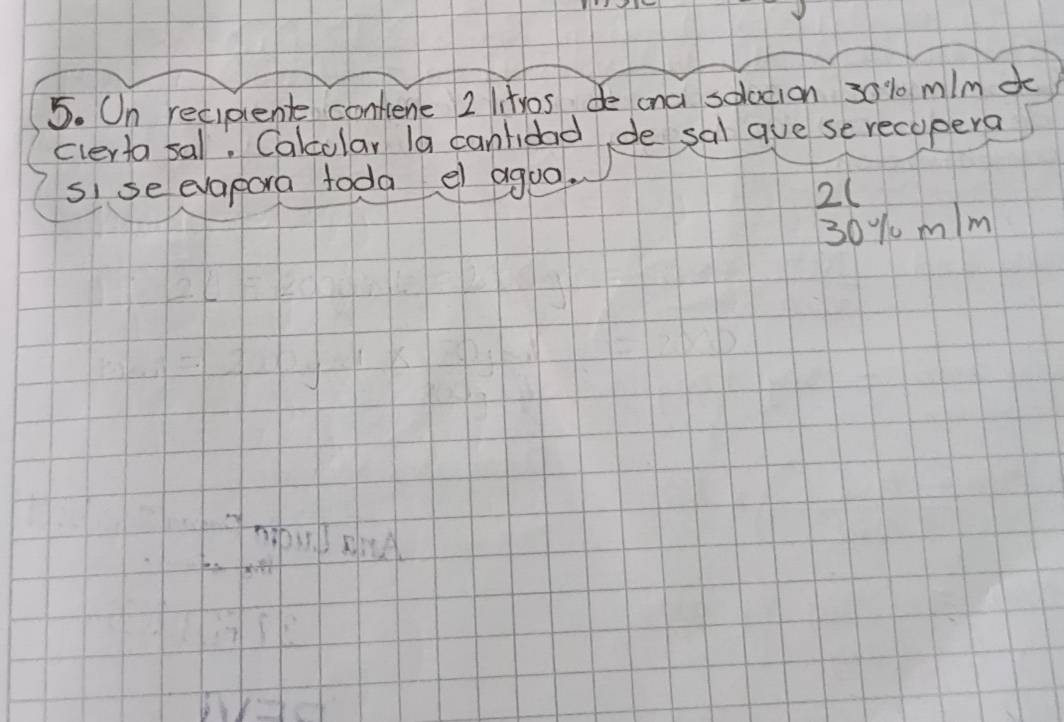 5. Un recipiente contiene 2 litros de una solución 30% m/m de
cierta sal. Calcular la cantidad de sal que se recupera
si se evapora toda el agua.
2l
30% m/m